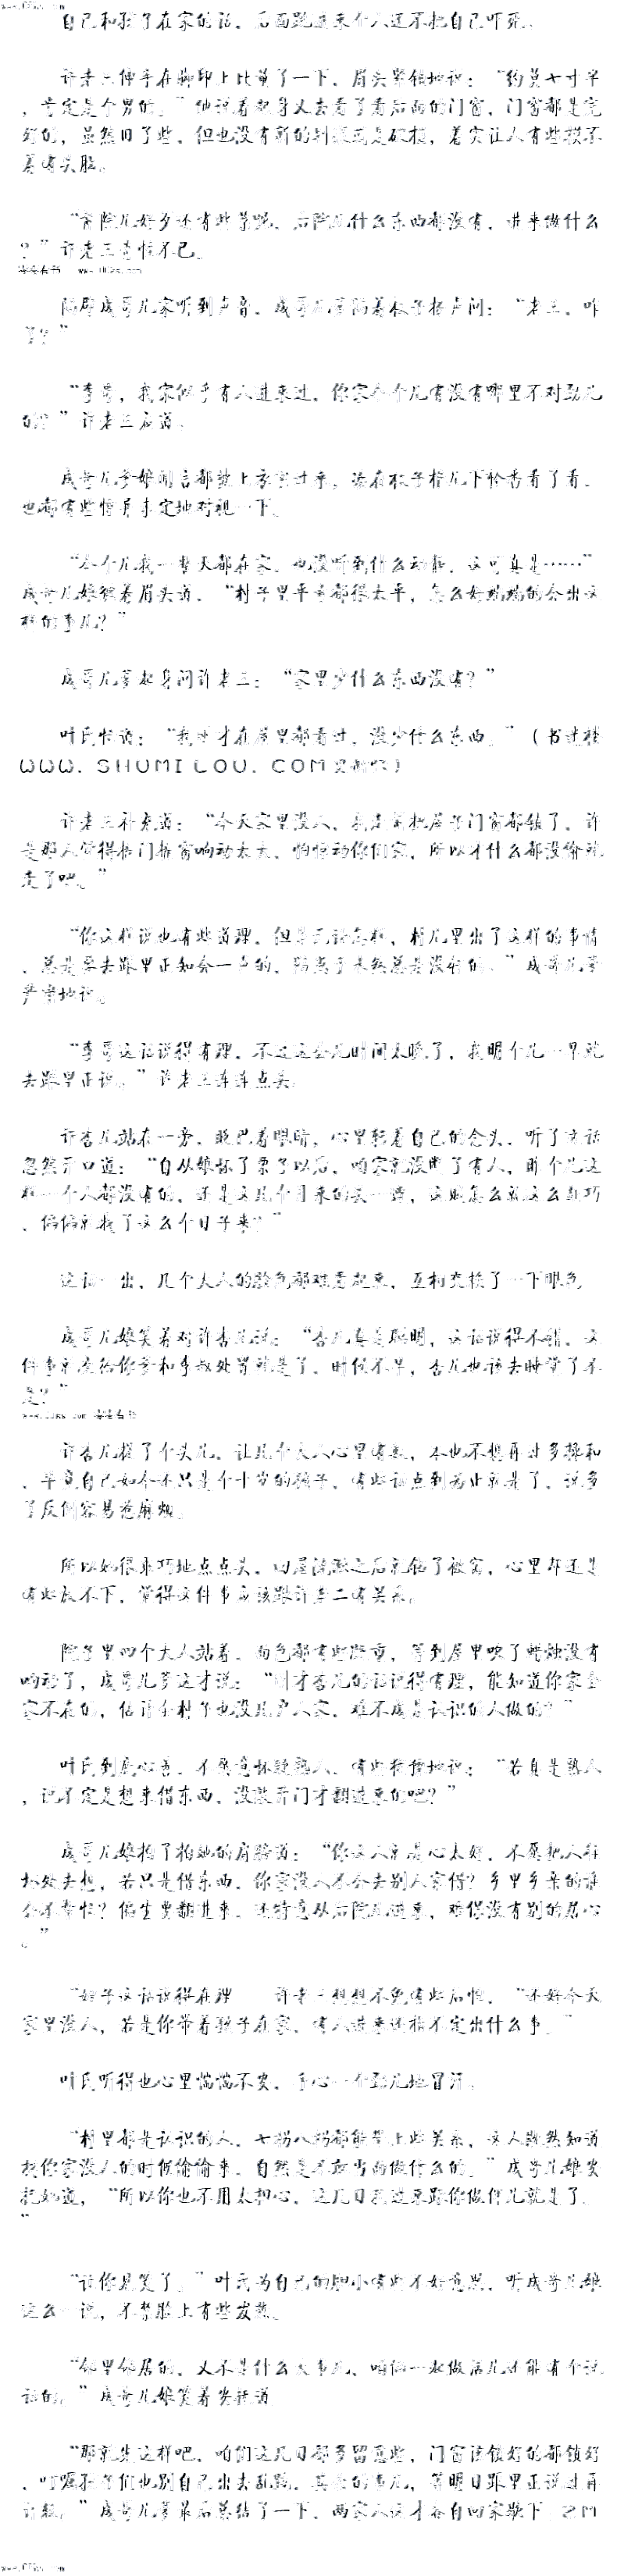 自己和孩子在家的话，后面跑进来个人还不把自己吓死。
许老三伸手在脚印上比量了一下，眉头紧锁地说：“约莫七寸半
，肯定是个男的。”他说着起身又去看了看后面的门窗，门窗都是完
好的，虽然旧了些，但也没有新的划痕或是破损，着实让人有些摸不
着头脑。
“前院儿好歹还有些草呢，后院儿什么东西都没有，进来做什么
？”许老三奇怪不已。
隔壁成哥儿家听到声音，成哥儿爹隔着杖子扬声问：“老三，咋
了？”
“李哥，我家似乎有人进来过，你家今个儿有没有哪里不对劲儿
的？”许老三应道。
成哥儿爹娘闻言都披上衣裳过来，
也都有些惊疑不定地对视一下。
“今个儿我一整天都在家，也没听到什么动静，这可真是……”
成哥儿娘皱着眉头道，“村子里平素都很太平，怎么好端端的会出这
样的事儿？”
成哥儿爹起身问许老三：“家里少什么东西没有？”
叶氏忙说：“我刚才在屋里都看过，没少什么东西。”（书迷楼
WWW.SHUMILOU.COM更新快）
许老三补充道：“今天家里没人，我走前把屋子门窗都锁了，许
是那人觉得撬门撬窗响动太大，怕惊动你们家，所以才什么都没偷就
走了吧。”
“你这样说也有些道理，但是无论怎样，村儿里出了这样的事情
，总是要去跟里正知会一声的，防患于未然总是没错的。”成哥儿爹
严肃地说。
“李哥这话说得有理，不过这会儿时间太晚了，我明个儿一早就
去跟里正说。”许老三连连点头。
许杏儿站在一旁，眨巴着眼睛，心里转着自己的念头，听了这话
忽然开口道：“自从娘怀了栗子以后，咱家就没断了有人，今个儿这
样一个人都没有的，还是这几个月来的头一遭，这贼怎么就这么赶巧
，偏偏就找了这么个日子来？”
这话一出，几个大人的脸色都难看起来，互相交换了一下眼色
成哥儿娘笑着对许杏儿说：“杏儿真是聪明，这话说得不错，这
件事就交给你爹和李叔处置就是了，时候不早，杏儿也该去睡觉了不
是？”
许杏儿提了个头儿，让几个大人心里有数，本也不想再过多掺和
，毕竟自己如今还只是个十岁的孩子，有些话点到为止就是了，说多
了反倒容易惹麻烦。
所以她很乖巧地点点头，回屋洗漱之后就钻了被窝，心里却还是
有些放不下，觉得这件事应该跟许老二有关系。
院子里四个大人站着，面色都有些凝重，等到屋里吹了蜡烛没有
响动了，成哥儿爹这才说：“刚才杏儿的话说得有理，能知道你家全
家不在的，估计全村子也没几户人家，难不成是认识的人做的？”
叶氏到底心善，不愿意怀疑熟人，有些犹豫地说：“若真是熟人
，说不定是想来借东西，没敲开门才翻进来的吧？”
成哥儿娘拍了拍她的肩膀道：“你这人就是心太好，不愿把人往
坏处去想，若只是借东西，你家没人不会去别人家借？乡里乡亲的谁
会不帮忙？偏生要翻进来，还特意从后院儿进来，难保没有别的居心
。”
“嫂子这话说得在理 许老三想想不免有些后怕，“还好今天
家里没人，若是你带着孩子在家，有人进来还指不定出什么事。”
叶氏听得也心里惴惴不安，手心一个劲儿地冒汗。
“村里都是认识的人，七拐八拐都能带上些关系，这人既然知道
找你家没人的时候偷偷来，自然是不敢当面做什么的。”成哥儿娘安
抚她道，“所以你也不用太担心，这几日我过来跟你做伴儿就是了。
”
“让你见笑了。”叶氏为自己的胆小有些不好意思，听成哥儿娘
这么一说，不禁脸上有些发热。
“邻里邻居的，又不是什么大事儿，咱俩一起做活儿才能有个说
话的。”成哥儿娘笑着安抚道
“那就先这样吧，咱们这几日都多留意些，门窗该锁好的都锁好
，叮嘱孩子们也别自己出去乱跑，其余的事儿，等明日跟里正说过再
计较。”成哥儿爹最后总结了一下，两家人这才各自回家歇下。